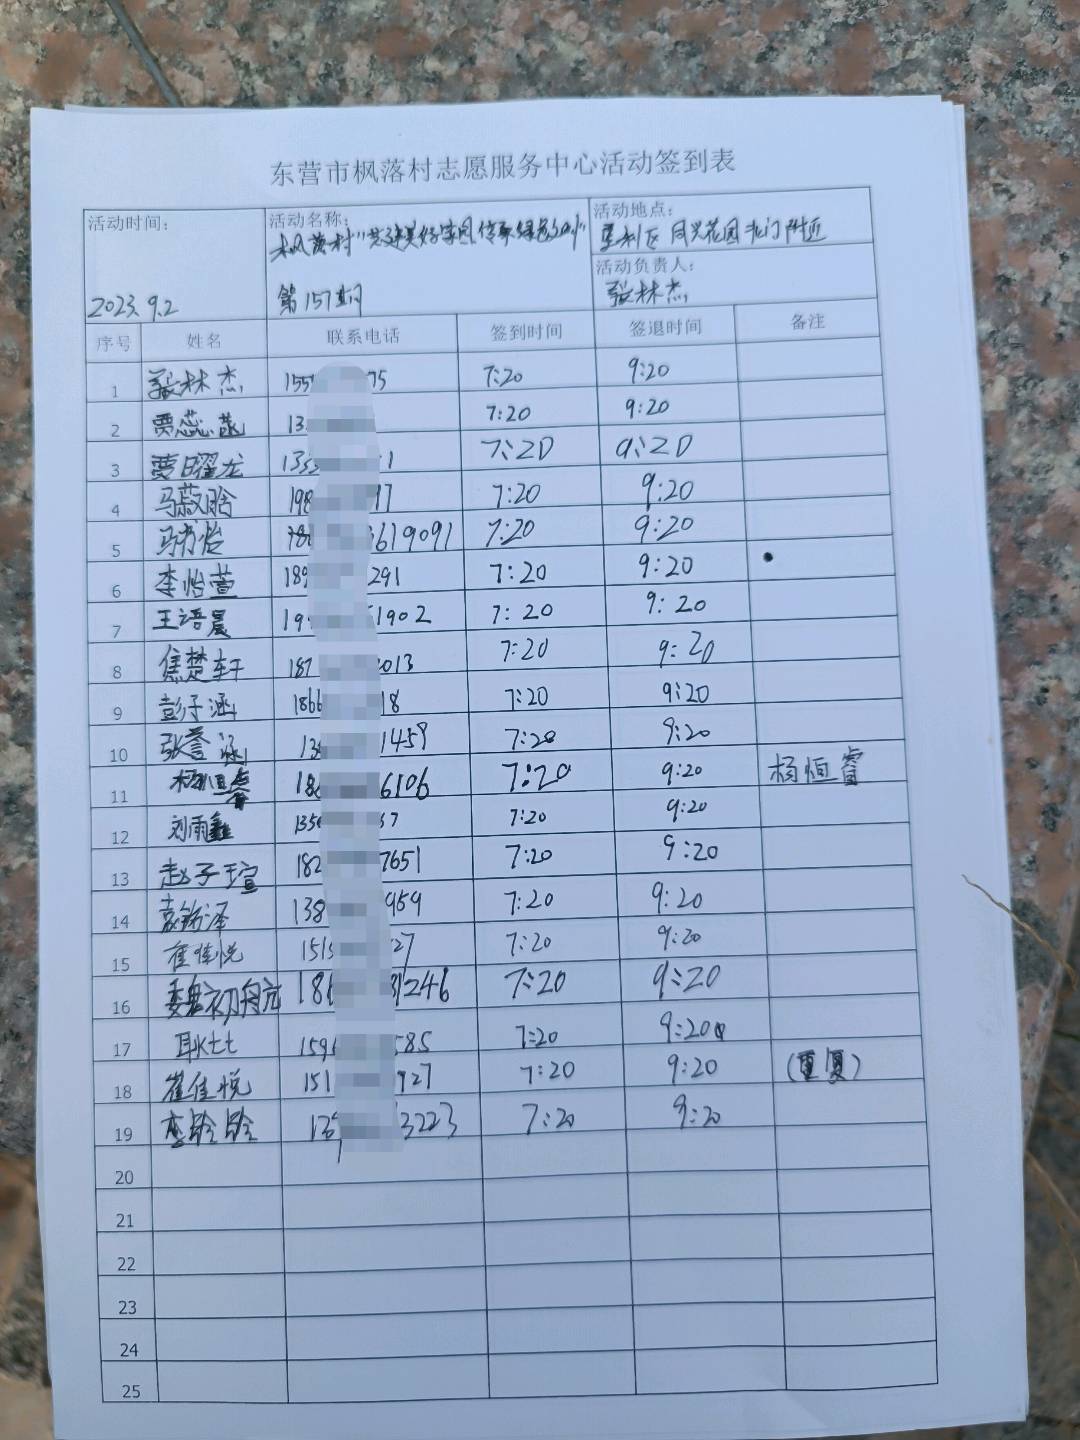 东营市枫落村志愿服务中心活动签到表
活动时间：
2023.9.2
活动名称：
枫落村"共建美好家园 传承绿色
第157期
活动地点：
垦利区 同兴花园北门附近
活动负责人：
张林杰
序号 姓名 联系电话 签到时间 签退时间 备注
1 张林杰 155 75 7:20 9:20
2 贾蕊菡 13 7:20 9:20
3 贾曜龙 133 1 7:20 9:20
4 马菽晗 198 17 7:20 9:20
5 马书怡 6619091 7:20 9:20
6 李怡萱 189 291 7:20 9:20
7 王语晨 19 1902 7:20 9:20
8 焦楚轩 187 2013 7:20 9:20
9 彭子涵 1866 18 7:20 9:20
10 张誉涵 13 1459 7:20 9:20
11 杨恒睿 18 6106 7:20 9:20 杨恒睿
12 刘雨鑫 135 37 7:20 9:20
13 赵子瑄 182 7651 7:20 9:20
14 袁铭泽 138 959 7:20 9:20
15 崔佳悦 151 27 7:20 9:20
16 魏初 186 31246 7:20 9:20
17 耿 159 585 7:20 9:20
18 崔佳悦 151 927 7:20 9:20 （重复）
19 龄龄 13 3223 7:20 9:20
20
21
22
23
24
25